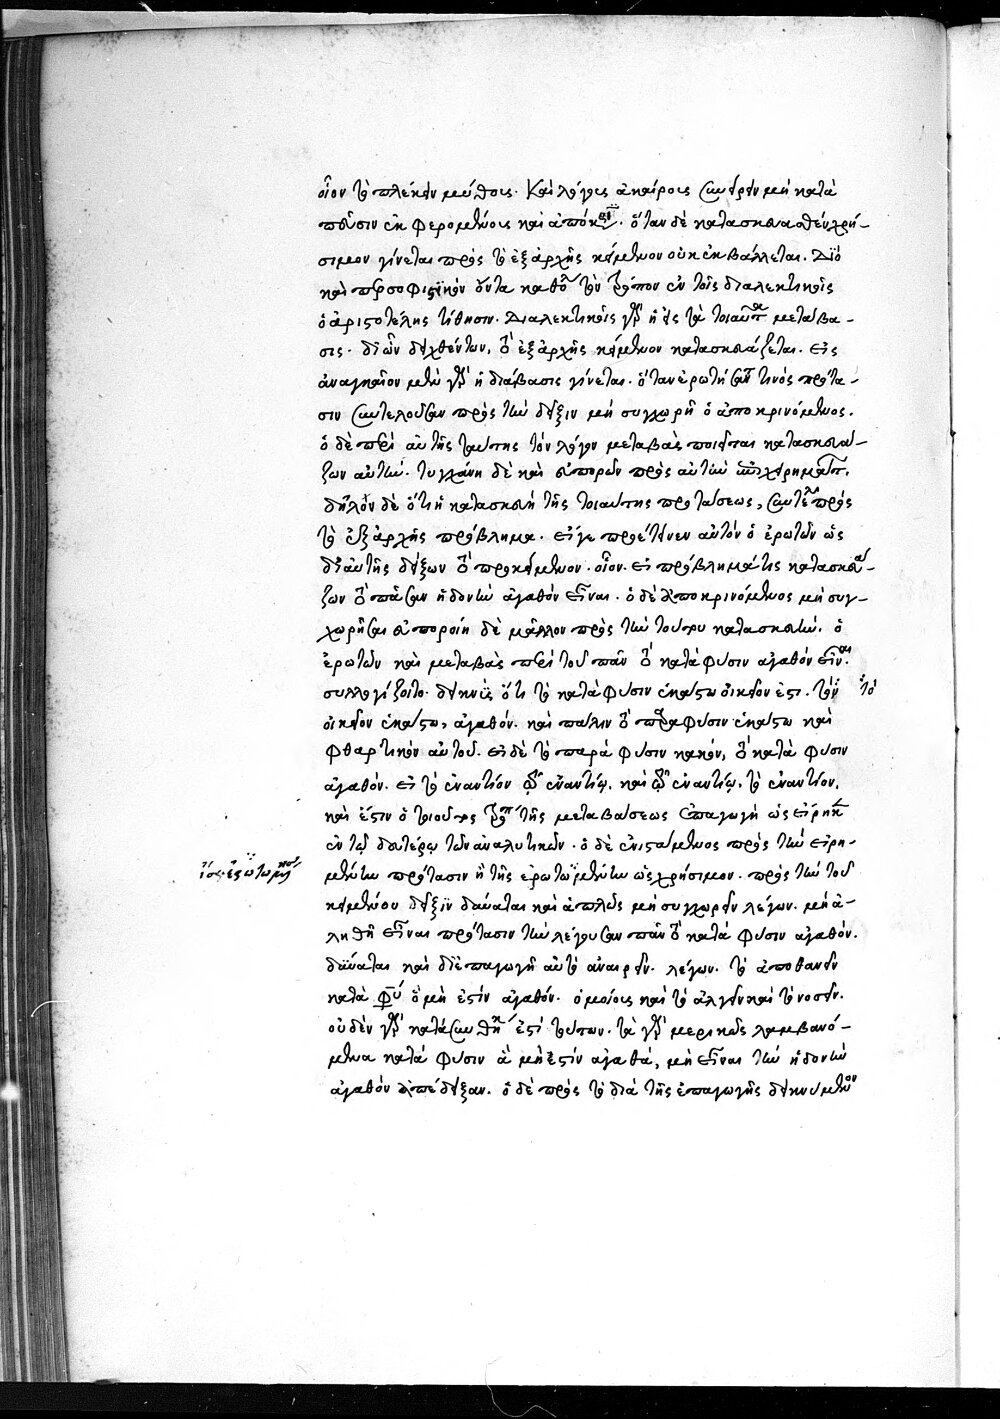 οἷον τὸ πλέκειν μύθοις. καὶ λόγοις ἀκαίροις συνείρειν μὴ κατὰ
φύσιν ἐκφερομένοις καὶ ἀπό. ὅταν δὲ κατασκευασθὲν χρή-
σιμον γίνεται πρὸς τὸ ἐξαρχῆς κείμενον οὐκ ἐκβάλλεται. Διὸ
καὶ σοφιστικὸν ὄντα καθ' τὸν τρόπον ἐν τοῖς διαλεκτικοῖς
ὁ ἀριστοτέλης τίθησιν. Διαλεκτικῆς γὰρ ἡ εἰς τὰ τοιαῦτα μετάβα-
σις. δι' ὧν δειχθέντων, τὸ ἐξαρχῆς κείμενον κατασκευάζεται. εἰς
ἀναγκαῖον μὲν γὰρ ἡ διάβασις γίνεται. ὅταν ἐρωτήσαντός τινος πρότα-
σιν συντελοῦσαν πρὸς τὴν δεῖξιν μὴ συγχωρῇ ὁ ἀποκρινόμενος.
ὁ δὲ περὶ αὐτῆς ταύτης τὸν λόγον μεταβὰς ποιῆται κατασκευά-
ζων αὐτήν. τυγχάνῃ δὲ καὶ εὐπορῶν πρὸς αὐτὴν ἐπιχειρημάτων.
δῆλον δὲ ὅτι ἡ κατασκευὴ τῆς τοιαύτης προτάσεως, συντελεῖ πρὸς
τὸ ἐξαρχῆς πρόβλημα. εἴγε προέτεινεν αὐτὸν ὁ ἐρωτῶν ὡς
δι' αὐτῆς δείξων τὸ προκείμενον. οἷον. εἰ πρόβλημά τις κατασκευά-
ζων τὸ πᾶσαν ἡδονὴν ἀγαθὸν εἶναι. ὁ δὲ ἀποκρινόμενος μὴ συγ-
χωρῆσαι εὐποροίη δὲ μᾶλλον πρὸς τὴν τούτου κατασκευήν. ὁ
ἐρωτῶν καὶ μεταβὰς περὶ τοῦ πᾶν τὸ κατὰ φύσιν ἀγαθὸν εἶναι.
συλλογίζοιτο. δεικνὺς ὅτι τὸ κατὰ φύσιν ἑκάστω οἰκεῖον ἐστι. τὸ δ' τὸ
οἰκεῖον ἑκάστω, ἀγαθόν. καὶ πάλιν τὸ παρὰ φύσιν ἑκάστω καὶ
φθαρτικὸν αὐτοῦ. εἰ δὲ τὸ παρὰ φύσιν κακόν, τὸ κατὰ φύσιν
ἀγαθόν. εἰ τὸ ἐναντίον τῷ ἐναντίῳ. καὶ τῷ ἐναντίῳ, τὸ ἐναντίον.
καὶ ἔστιν ὁ τοιοῦτος τρόπος τῆς μεταβάσεως ἐπαγωγὴ ὡς εἴρηκεν
ἐν τῷ δευτέρῳ τῶν ἀναλυτικῶν. ὁ δὲ ἐνιστάμενος πρὸς τὴν εἰρη-
μένην πρότασιν ἢ τῆς ἐρωτωμένην ὡς χρήσιμον. πρὸς τὴν τοῦ
κειμένου δεῖξιν δύναται καὶ ἁπλῶς μὴ συγχωρεῖν λέγων. μὴ ἀ-
ληθῆ εἶναι πρότασιν τὴν λέγουσαν πᾶν τὸ κατὰ φύσιν ἀγαθόν.
δύναται καὶ δι' ἐπαγωγῆς αὐτὸ ἀναιρεῖν. λέγων. τὸ ἀποθανεῖν
κατὰ φύ ὃ μή ἐστιν ἀγαθόν. ὁμοίως καὶ τὸ ἀλγεῖν καὶ τὸ νοσεῖν.
οὐδὲν γὰρ ἐστὶ τούτων. τὰ γὰρ μερικῶς λαμβανό-
μενα κατὰ φύσιν ἃ μή ἐστιν ἀγαθά, μὴ εἶναι τὴν ἡδονὴν
ἀγαθὸν ἀπέδειξαν. ὁ δὲ πρὸς τὸ διὰ τῆς ἐπαγωγῆς δεικνύμενον
ἴσ.